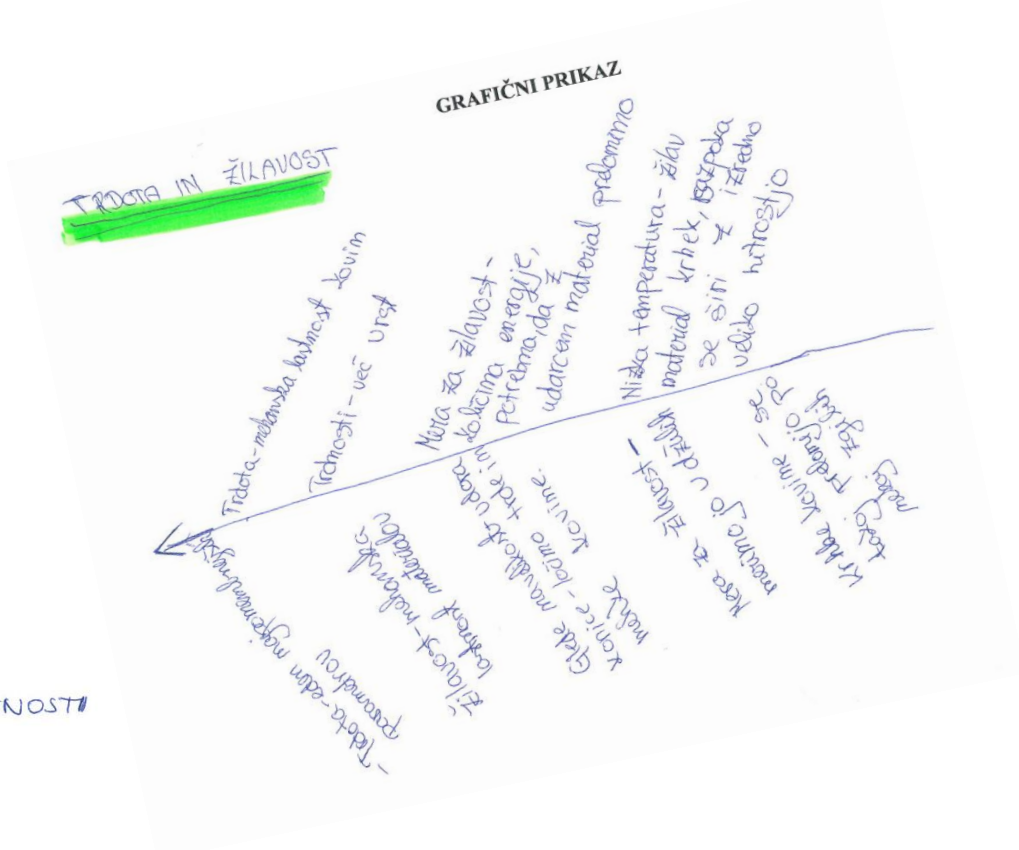 GRAFIČNI PRIKAZ
TRDOTA IN ŽILAVOST
Trdota-mehanska lastnost kovin
Trdnosti-več vrst
Mera za žilavost-
količina energije,
potrebna, da z
udarcem material prelomimo
Nizka temperatura-žilav
material krhek, razpoka
se širi z izredno
veliko hitrostjo
-Trdota-eden najpomembnejših
parametrov
Žilavost-mehanska
lastnost materialov
Glede na velikost udora
konice-ločimo trde in
mehke kovine.
Mera za žilavost-
merimo jo v džulih
Krhke kovine-se
takoj prelomijo po
nekaj zgibih
NOSTI